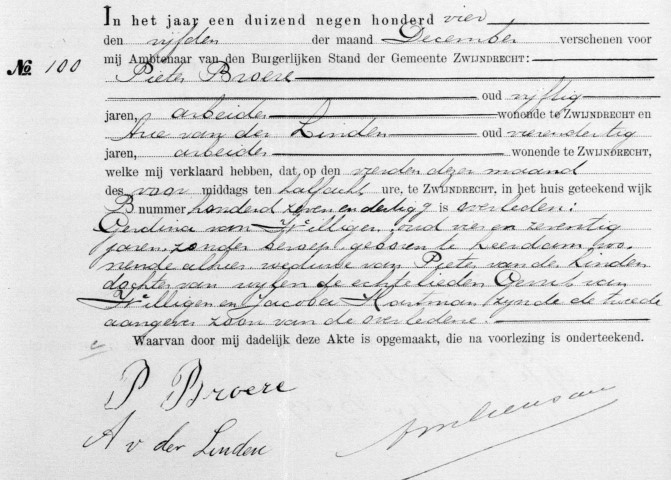 In het jaar een duizend negen honderd vier
den vijfden der maand December verschenen voor
mij Ambtenaar van den Burgerlijken Stand der Gemeente ZWIJNDRECHT:
No. 100 Pieter Broere
oud vijftig
jaren, arbeider wonende te ZWIJNDRECHT en
Arie van der Linden oud vierendertig
jaren, arbeider wonende te ZWIJNDRECHT,
welke mij verklaard hebben, dat op den vierden dezer maand
des voor middags ten half acht ure, te ZWIJNDRECHT, in het huis geteekend wijk
B nummer honderd zeven en dertig is overleden:
Gerdina van Willigen, oud vier en zeventig
jaren, zonder beroep geboren te Leerdam wo-
nende alhier weduwe van Pieter van der Linden
dochter van wijlen de echtelieden Gerrit van
Willigen en Jacoba zijnde de tweede
aangever zoon van de overledene.
Waarvan door mij dadelijk deze Akte is opgemaakt, die na voorlezing is onderteekend.
P Broere
A v der Linden